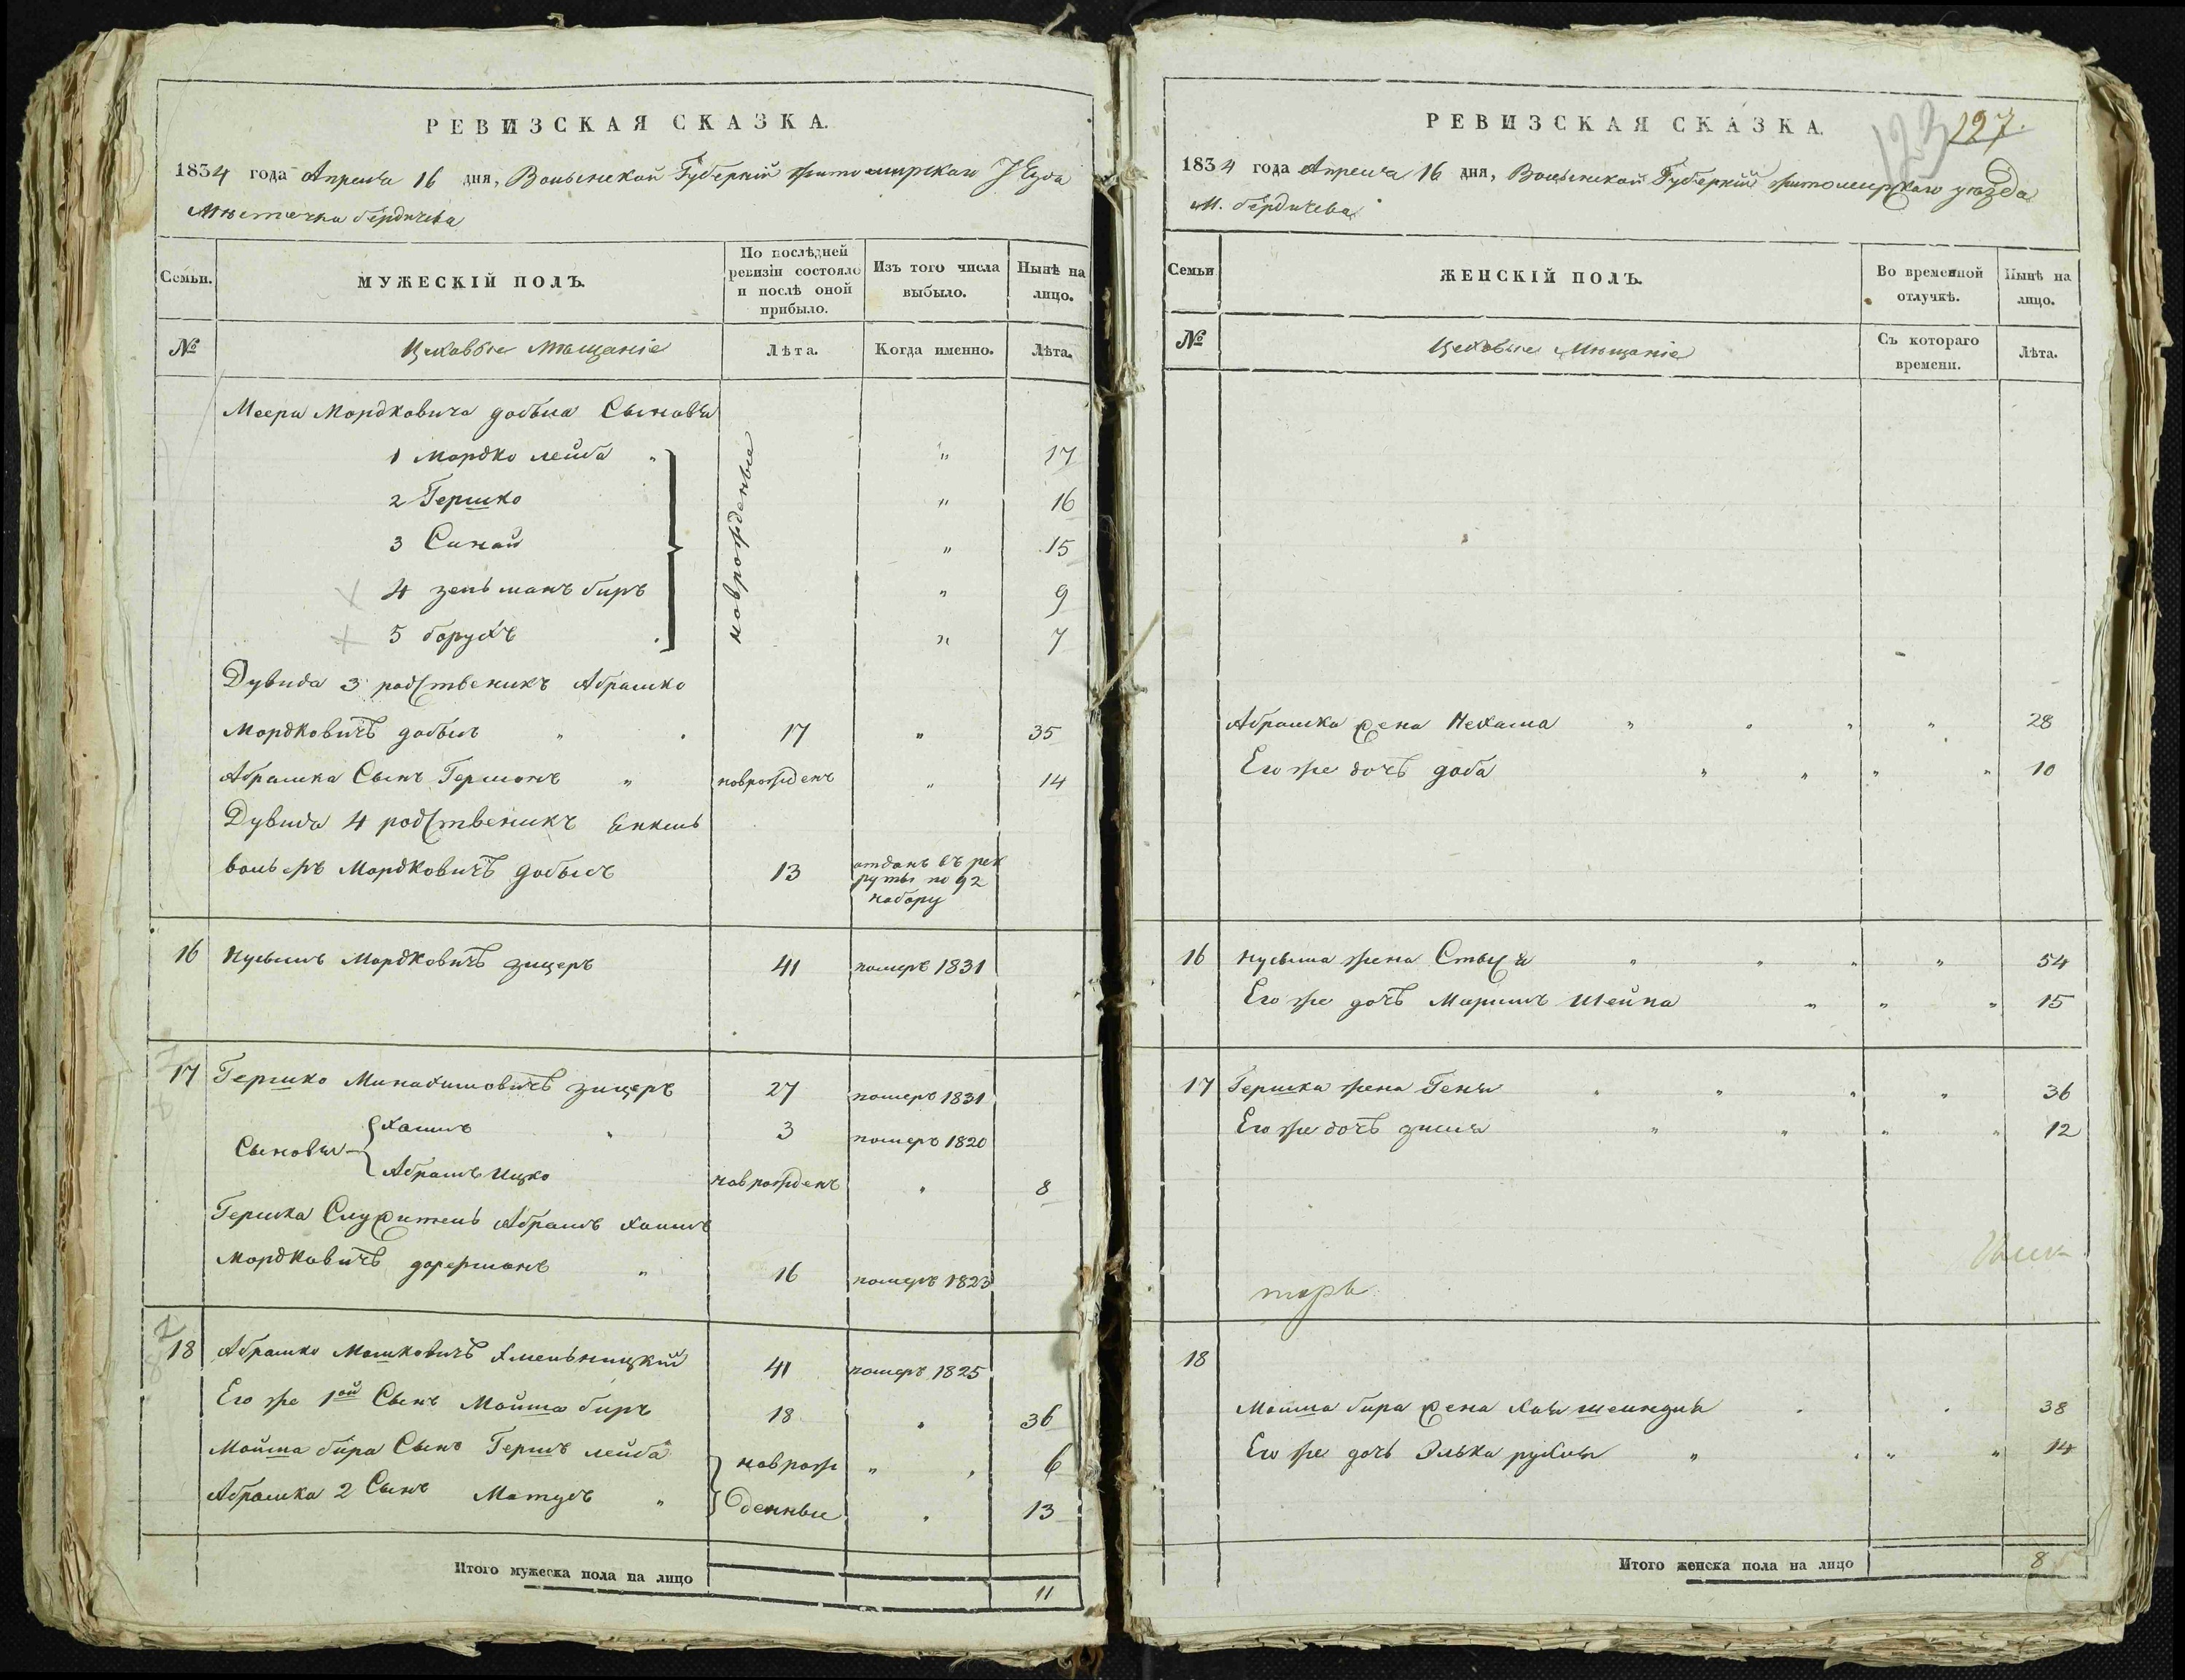 РЕВИЗСКАЯ СКАЗКА.
1834 года Апреля 16 дня, Волынской Губерніи житомирскаго уезда
Местечка бердичева
Семьи.
МУЖЕСКІЙ ПОЛЪ.
По послѣдней ревизіи состояло и послѣ оной прибыло.
Изъ того числа выбыло.
Нынѣ на лицо.
№
Цеховые Мещаніе
Лѣта.
Когда именно.
Лѣта.
Меера Мордковича добыса Сыновя
1 Мордко лейба " 17
2 Гершко " 16
3 Синай " 15
4 зельманъ биръ " 9
5 борухъ " 7
новрожденые
Дувида 3 родственикъ Абрашко
Мордковичъ добысъ 17 " 35
Абрашка Сынъ Гершонъ новрожденъ " 14
Дувида 4 родственикъ Енкель
вольфъ Мордковичъ добысъ 13 отданъ въ рек
руты по 92
набору
16 Нусымъ Мордковичъ зицеръ 41 померъ 1831
17 Гершко Минахимовичъ зицеръ 27 померъ 1831
Сыновя
Хаимъ 3 померъ 1820
Абрамъ Ицко новрожденъ " 8
Гершка Служитель Абрамъ хаимъ
Мордковичъ дорфманъ 16 померъ 1823
18 Абрашко Мошковичъ Хмельницкій 41 померъ 1825
Его же 1ой Сынъ Мойша биръ 18 " 36
Мойша бира Сынъ Гершъ лейба новрож " 6
Абрашка 2 Сынъ Матусъ денные " 13
Итого мужеска пола на лицо 11
РЕВИЗСКАЯ СКАЗКА.
123
127.
1834 года Апреля 16 дня, Волынской Губерніи житомирскаго уезда
М. бердичева
Семьи
ЖЕНСКІЙ ПОЛЪ.
Во временной отлучкѣ.
Нынѣ на лицо.
№
Цеховые Мещаніе
Съ котораго времени.
Лѣта.
Абрашка жена Нехама " 28
Его же дочь доба " 10
16 нусыма жена Стыся " 54
Его же дочь Мариамъ Шейна " 15
17 Гершка жена Геня " 36
Его же дочь зися " 12
18
Мойша бира жена хая шейндля 38
Его же дочь Элька рухля " 14
Итого женска пола на лицо 8